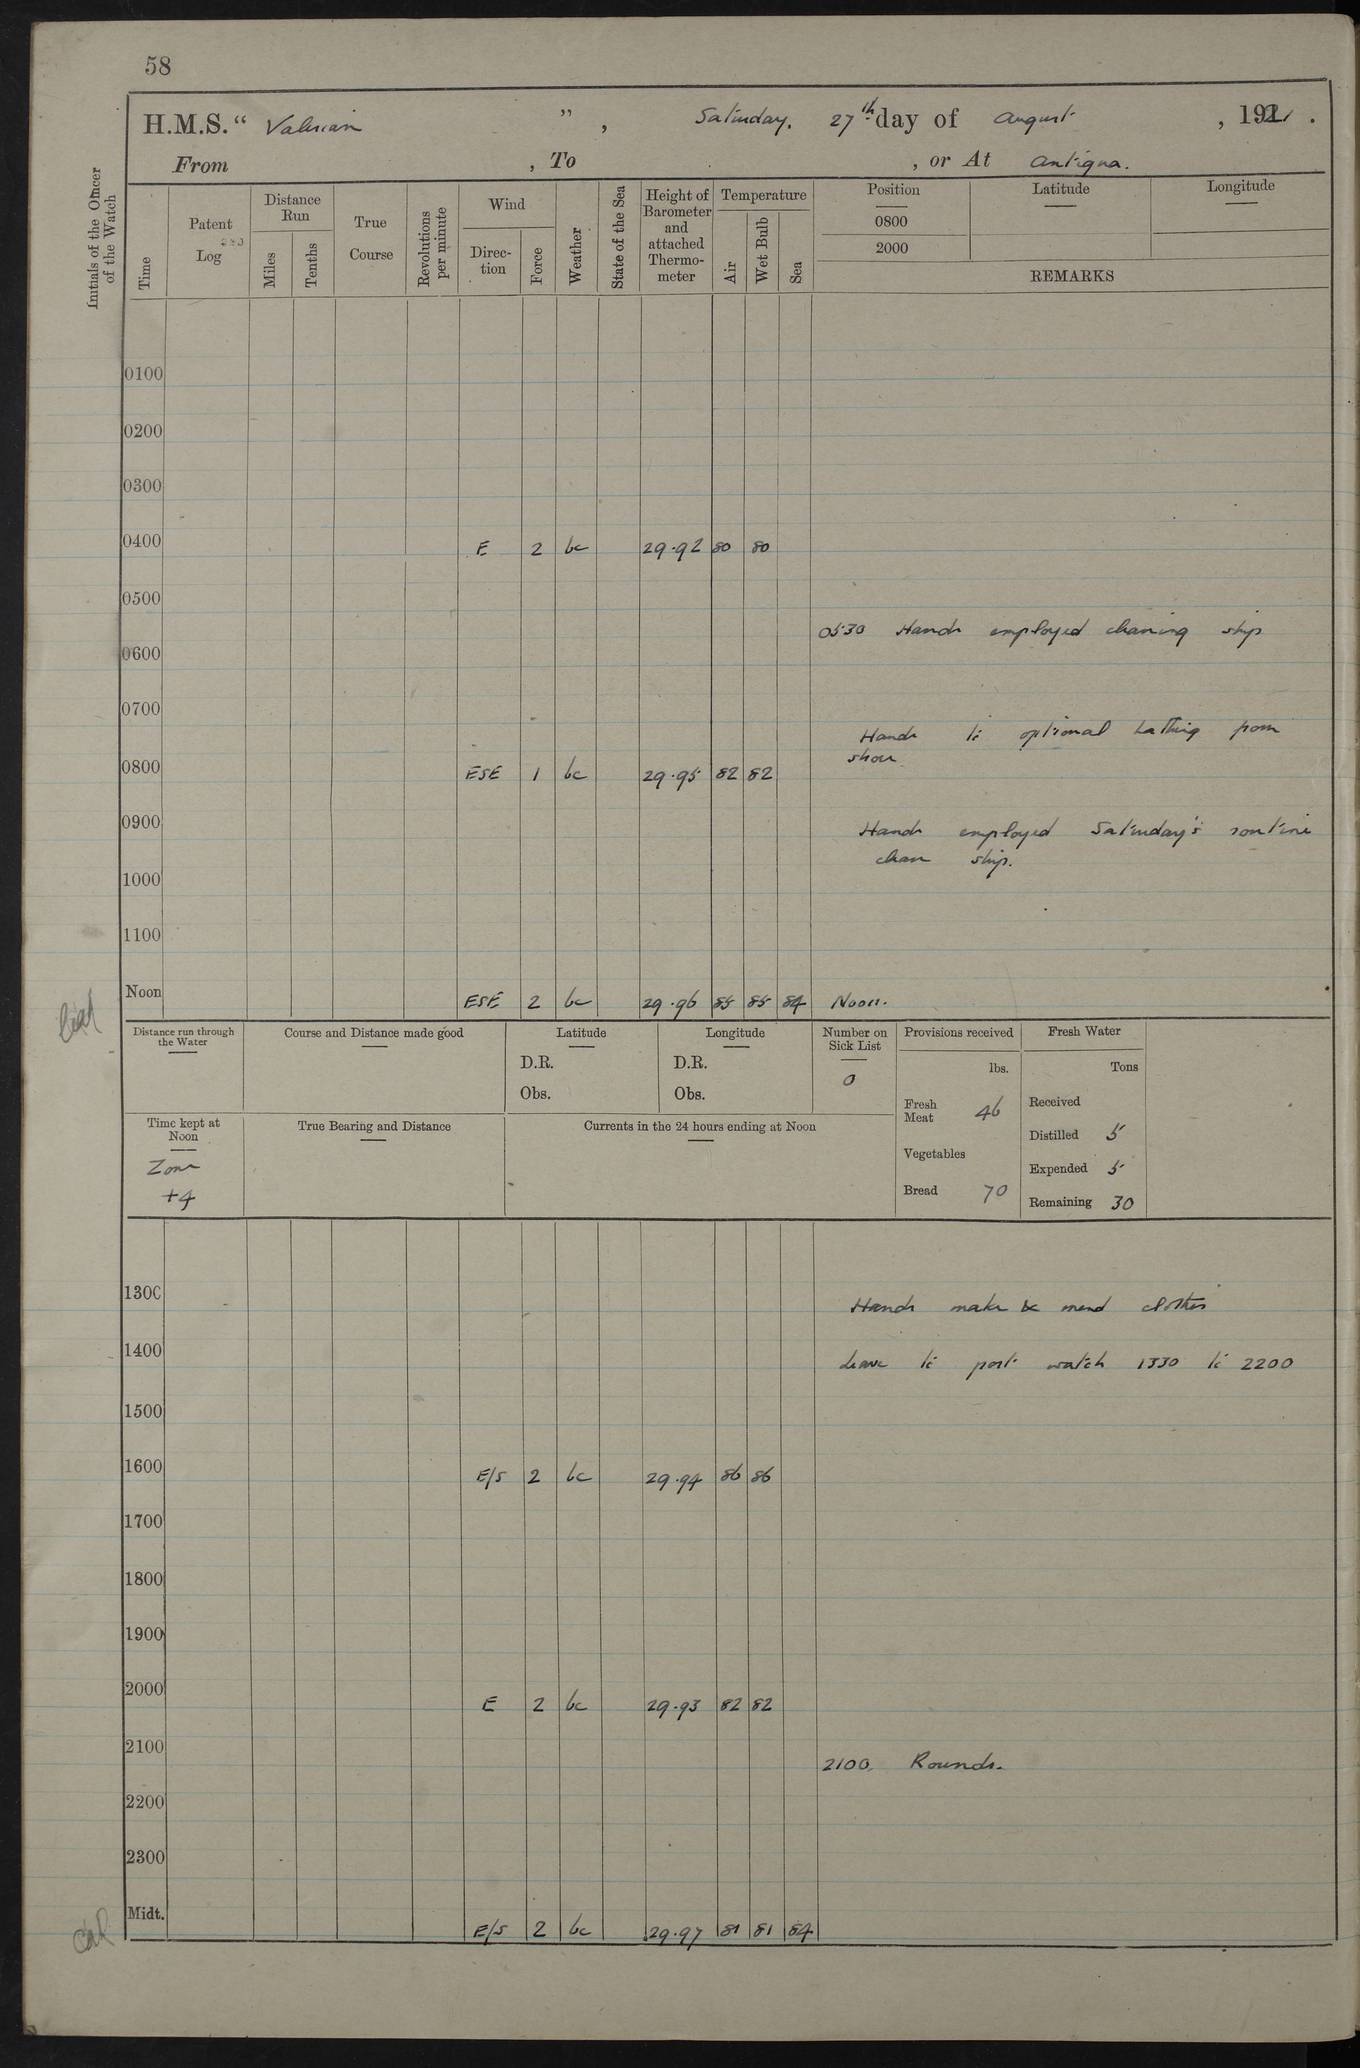 58
H.M.S. “ Valerian ” , Saturday, 27th day of August , 1921 .
From , To , or At Antigua.
Initials of the Officer of the Watch
Time
Patent Log
Distance Run
Miles
Tenths
True Course
Revolutions per minute
Wind
Direc-tion
Force
Weather
State of the Sea
Height of Barometer and attached Thermo-meter
Temperature
Air
Wet Bulb
Sea
Position
0800
2000
Latitude
Longitude
REMARKS
0100
0200
0300
0400 E 2 bc 29.92 80 80
0500
0530 Hands employed cleaning ship
0600
0700
Hands to optional bathing from
shore
0800 ESE 1 bc 29.95 82 82
0900 Hands employed Saturday's routine
clean ship.
1000
1100
Noon ESE 2 bc 29.96 85 85 84 Noon.
Distance run through the Water
Course and Distance made good
Latitude
D.R.
Obs.
Longitude
D.R.
Obs.
Number on Sick List
0
Provisions received
lbs.
Fresh Meat 46
Vegetables
Bread 70
Fresh Water
Tons
Received
Distilled 5
Expended 5
Remaining 30
Time kept at Noon
Zone
+4
True Bearing and Distance
Currents in the 24 hours ending at Noon
1300 Hands make & mend clothes
1400 Leave to port watch 1330 to 2200
1500
1600 E/S 2 bc 29.94 86 86
1700
1800
1900
2000 E 2 bc 29.93 82 82
2100 2100. Rounds.
2200
2300
Midt. E/S 2 bc 29.97 81 81 84